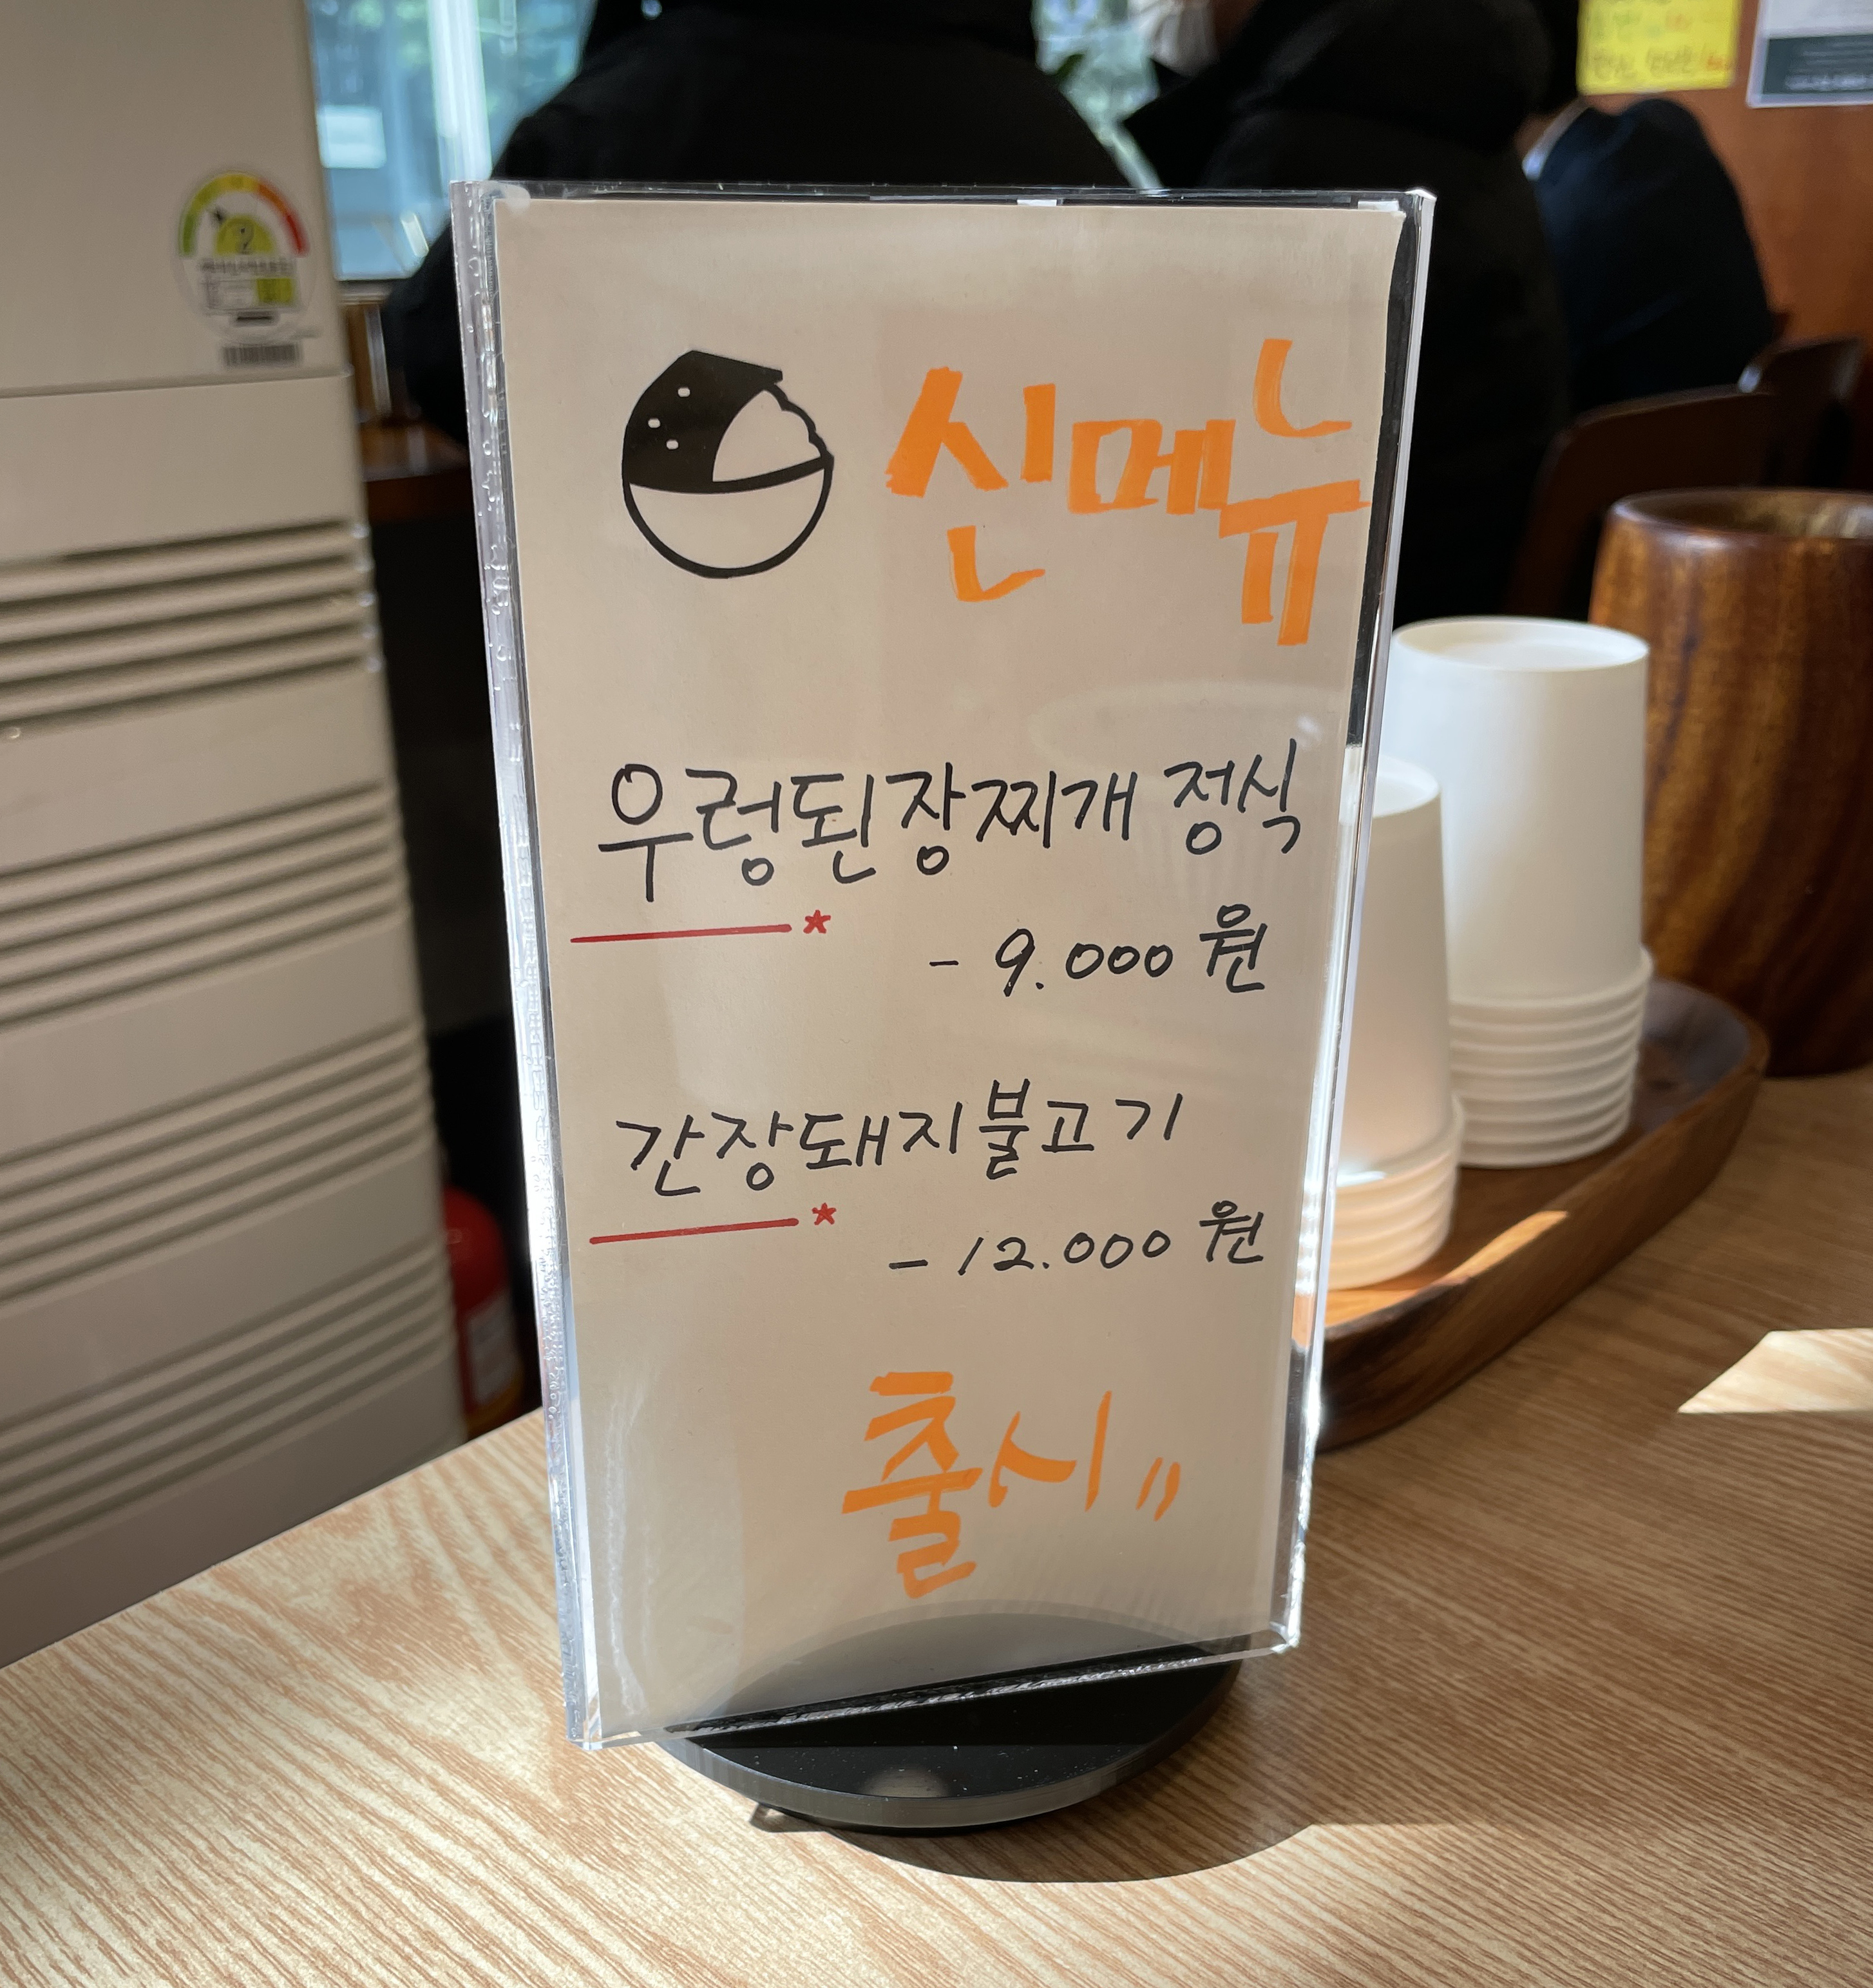 신메뉴
우렁된장찌개 정식
- 9.000 원
간장돼지불고기
- 12.000 원
출시 〃